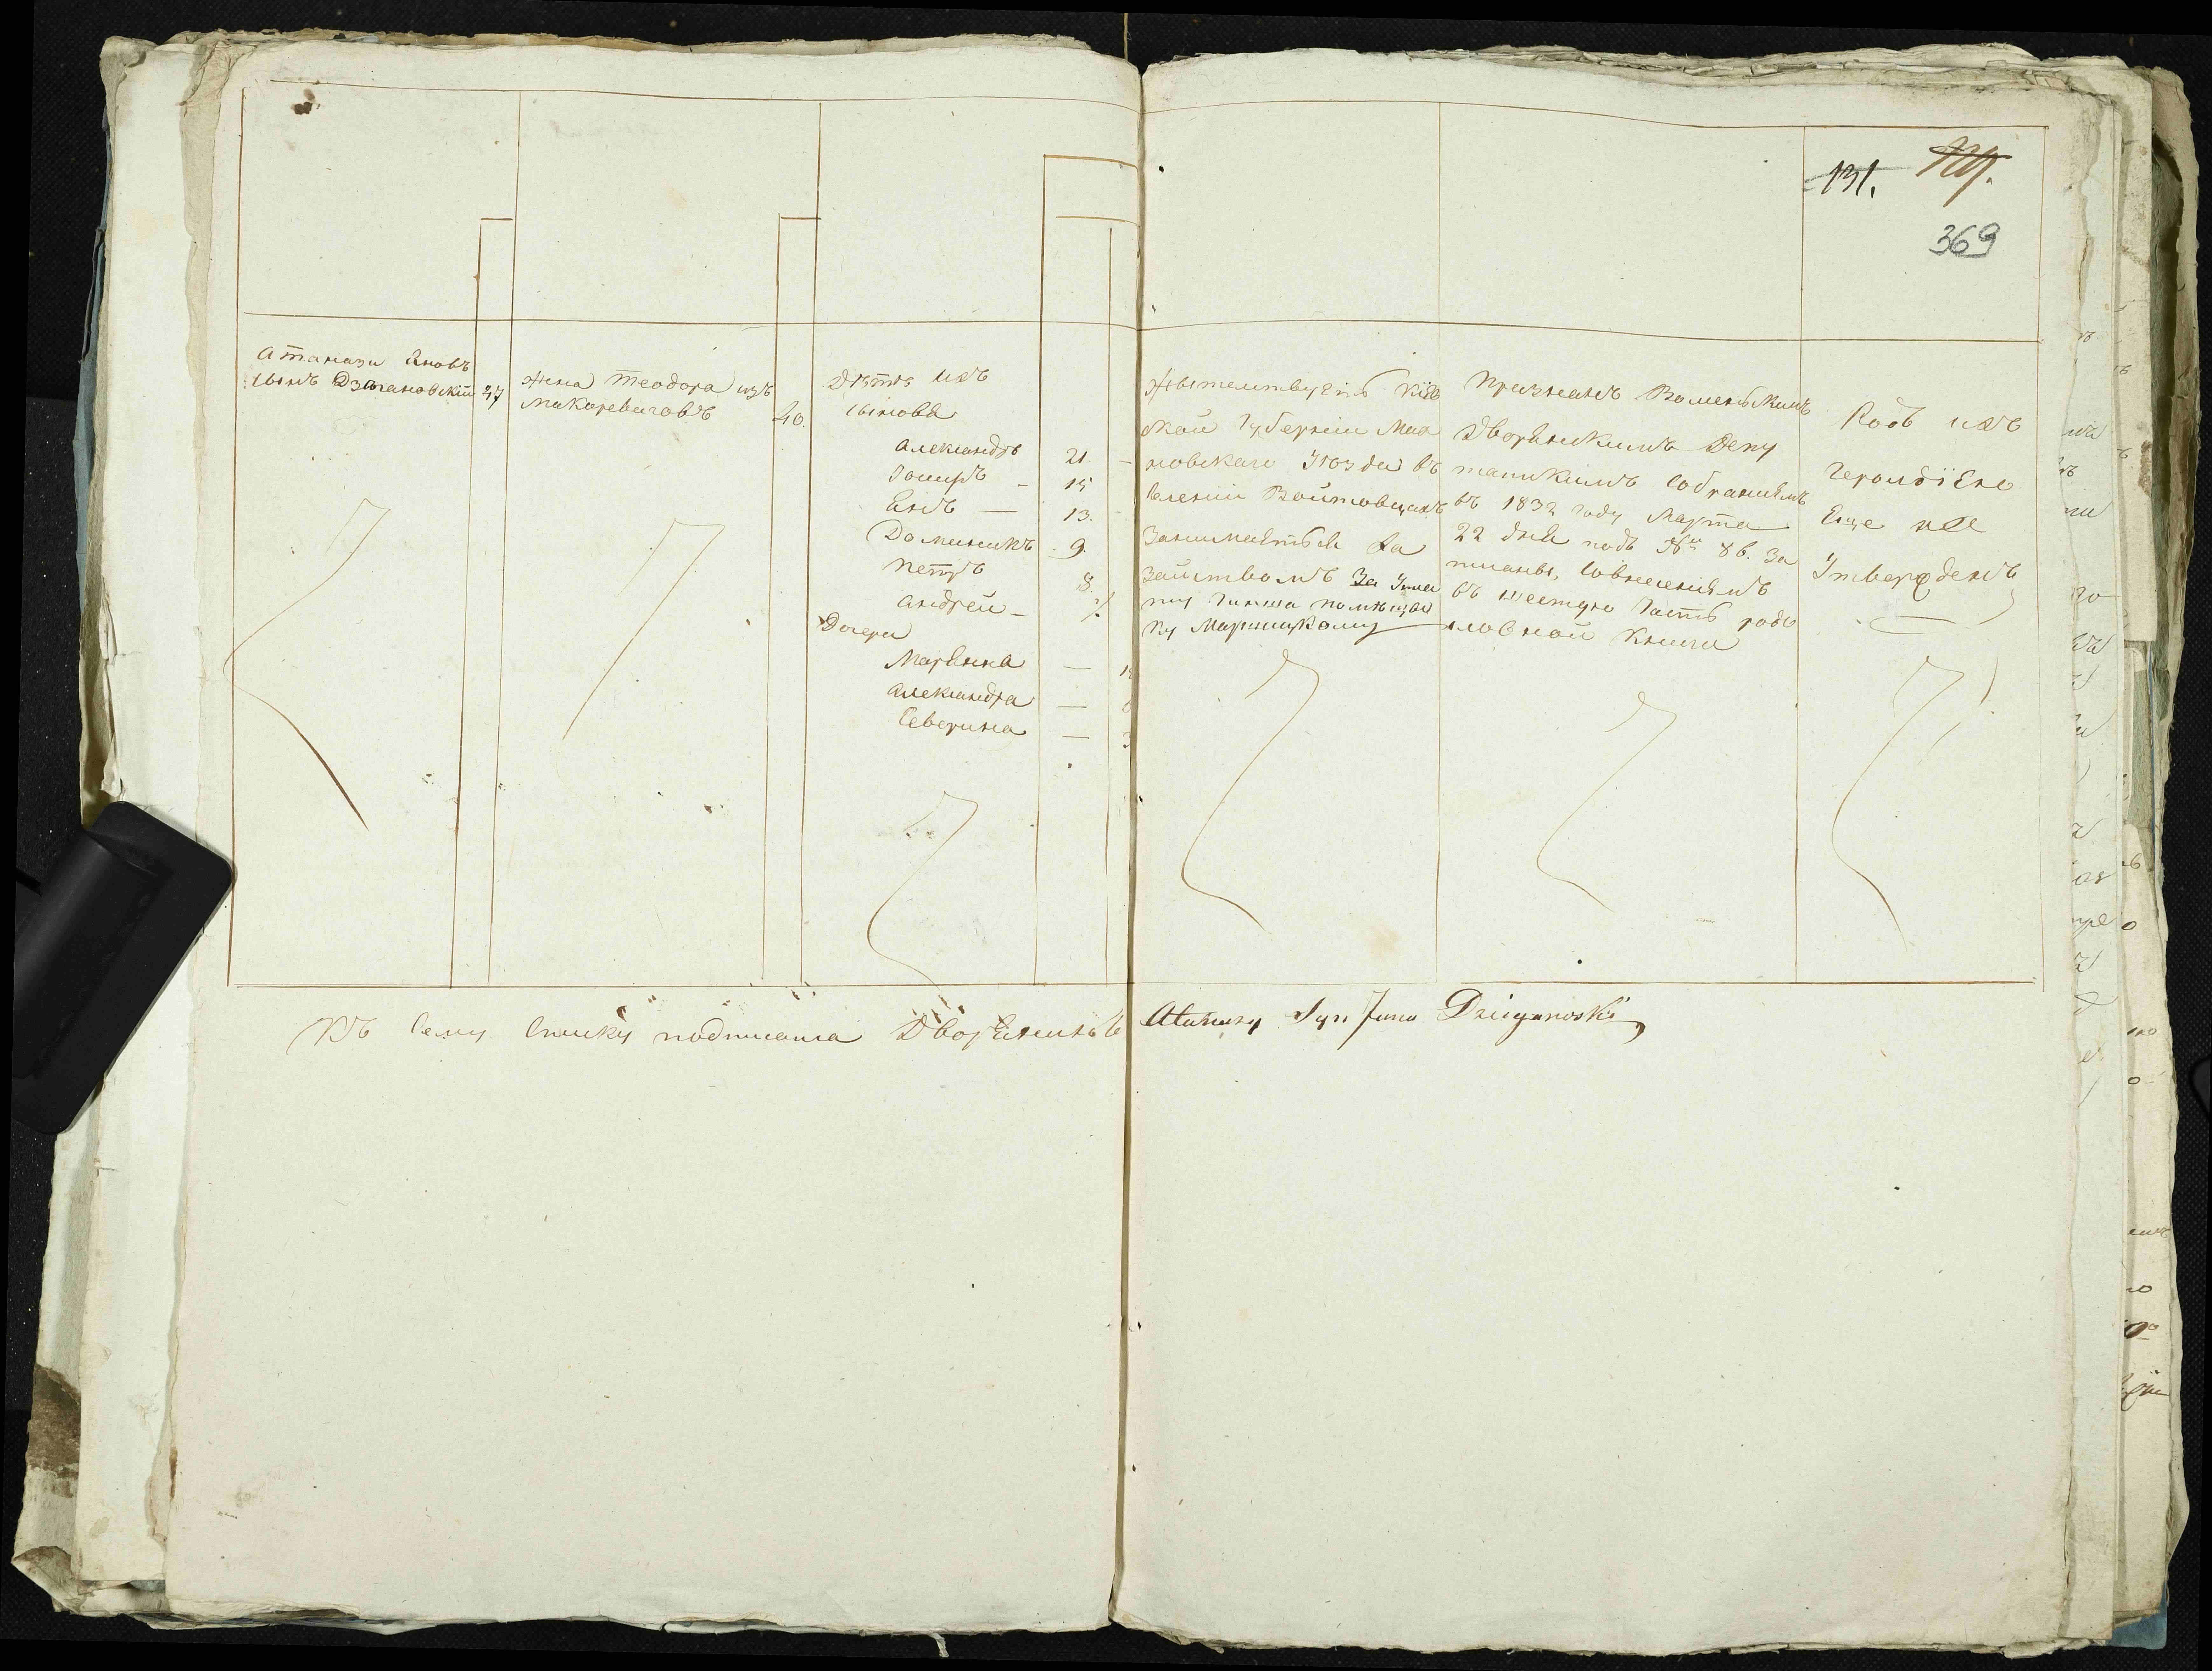 131.
369
Атанази Яновъ
сынъ Дзыгановскій 47
Жена Теодора изъ
Макаревичовъ 40.
Дѣти ихъ
сыновя
Александръ 21.
15
Янъ — 13.
Доминикъ 9.
Петръ 8.
Андрей —
Дочери
Марянна —
Александра —
Северина — 3
Жительствуетъ Кіев
ской Губерніи Мах
новскаго Уѣзда въ
селеніи Войтовцахъ
Занимаится ха
зайствомъ За Упла
ту чинша помѣщи
ку Маршицкому
Признанъ Волынскимъ
Дворянскимъ Депу
татскимъ Собраніямъ
въ 1832 году Марта
22 дня подъ № 86. За
писаны, Совнесеніямъ
въ шестую Часть родо
словной Книги
Родъ ихъ
Герольдіею
Еще не
Утвержденъ
Къ сему списку подписался Дворянинъ Atanazy Syn Jana Dziyganoski